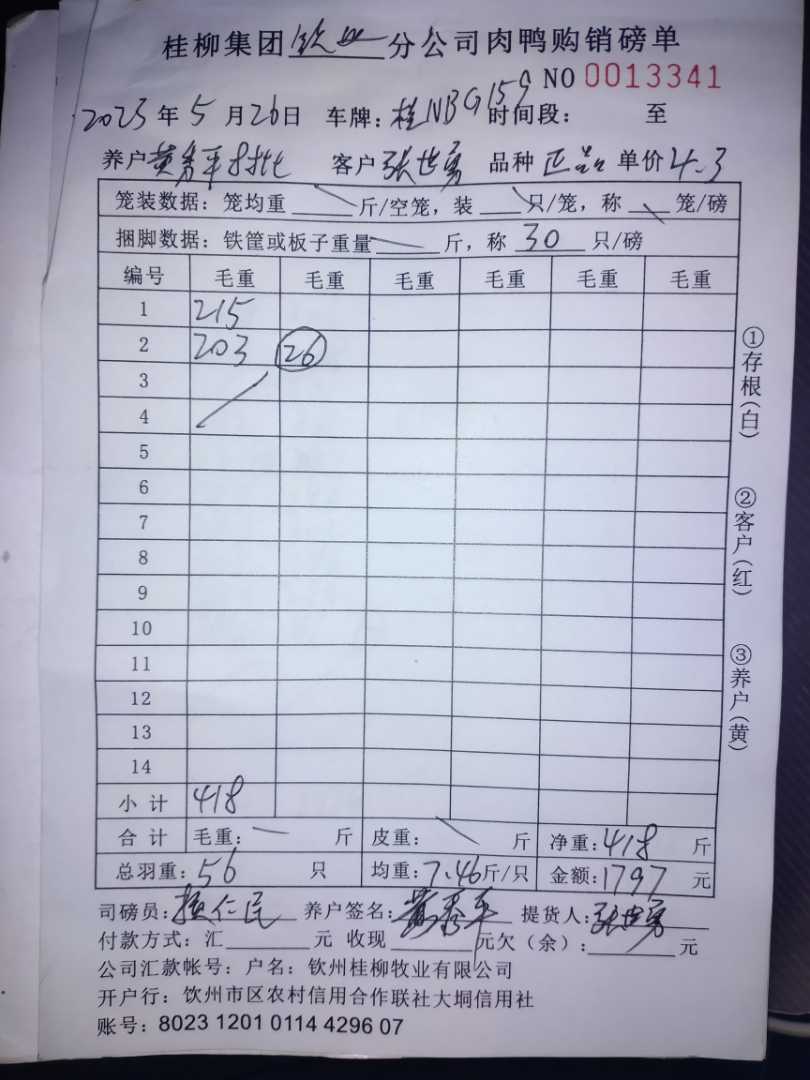 桂柳集团钦州分公司肉鸭购销磅单
NO 0013341
2023年5月26日 车牌：桂NBG159 时间段： 至
养户 黄秀平8批 客户 张世勇 品种 正品 单价4.3
笼装数据：笼均重 斤/空笼，装 只/笼，称 笼/磅
捆脚数据：铁筐或板子重量 斤，称 30 只/磅
编号 毛重 毛重 毛重 毛重 毛重 毛重
1 215
2 203 26
3
4
5
6
7
8
9
10
11
12
13
14
小计 418
合计 毛重： 斤 皮重： 斤 净重：418 斤
总羽重：56 只 均重：7.46斤/只 金额：1797 元
司磅员： 仁民 养户签名：黄秀平 提货人：张世勇
付款方式：汇 元 收现 元欠（余）： 元
公司汇款帐号：户名：钦州桂柳牧业有限公司
开户行：钦州市区农村信用合作联社大垌信用社
账号：8023 1201 0114 4296 07
①存根（白）
②客户（红）
③养户（黄）